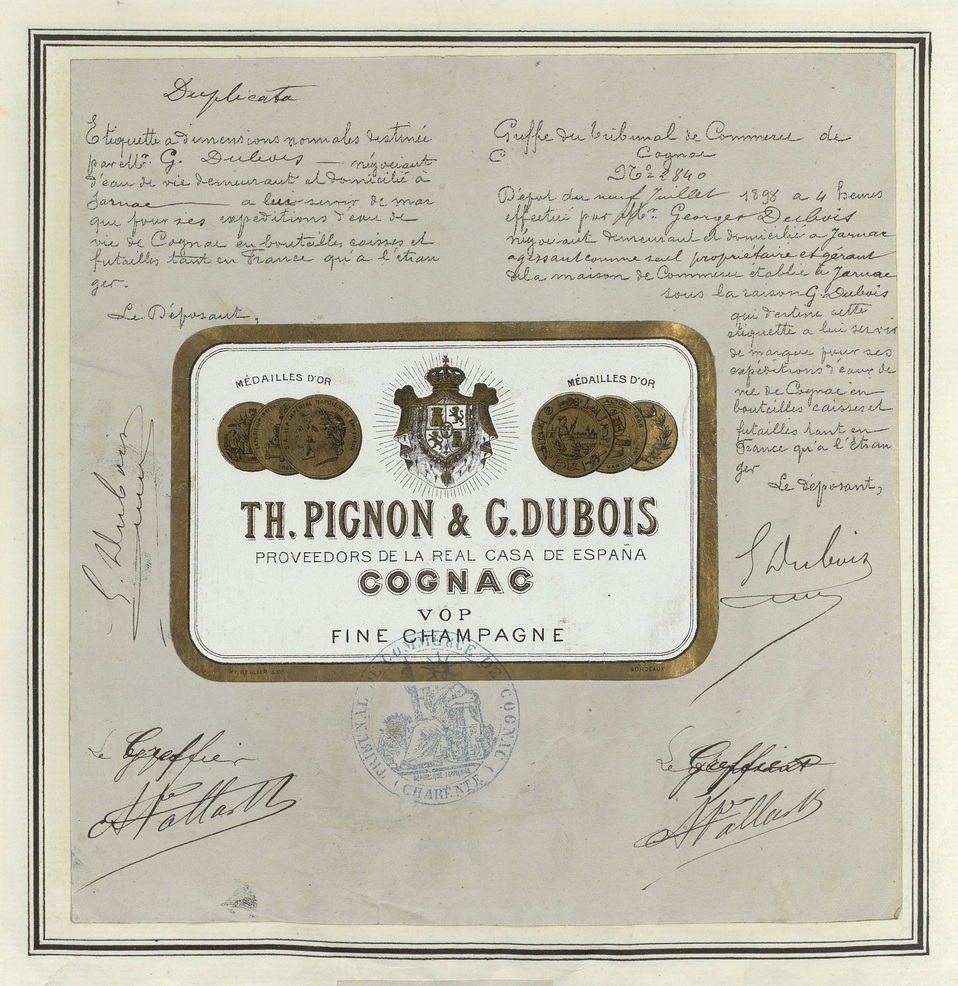 Duplicata
Etiquette a dimensions normales destinée
par Mr. G. Dubois — négociant
d'eau de vie demeurant et domicilié à
Jarnac — a lui servir de mar
que pour ses expéditions d'eau de
vie de Cognac en bouteilles caisses et
futailles tant en France qu'a l'étran
ger.
Le Déposant,
G. Dubois
Greffe du Tribunal de Commerce de
C Cognac
No 2840
Dépot du neuf Juillet 1898 a 4 heures
effectué par Mr. Georges Dubois
négociant demeurant et domicilié a Jarnac
agissant comme seul propriétaire et gérant
de la maison de Commerce établie à Jarnac
sous la raison G. Dubois
qui destine cette
étiquette a lui servir
de marque pour ses
expéditions d'eaux de
vie de Cognac en
bouteilles caisses et
futailles tant en
France qu'a l'Etran
ger
Le déposant,
G Dubois
MÉDAILLES D'OR
MÉDAILLES D'OR
TH. PIGNON & G. DUBOIS
PROVEEDORS DE LA REAL CASA DE ESPAÑA
COGNAC
VOP
FINE CHAMPAGNE
BORDEAUX
TRIBUNAL DE COMMERCE DE COGNAC
RÉPUBLIQUE FRANÇAISE
(CHARENTE)
Le Greffier
Le Greffier